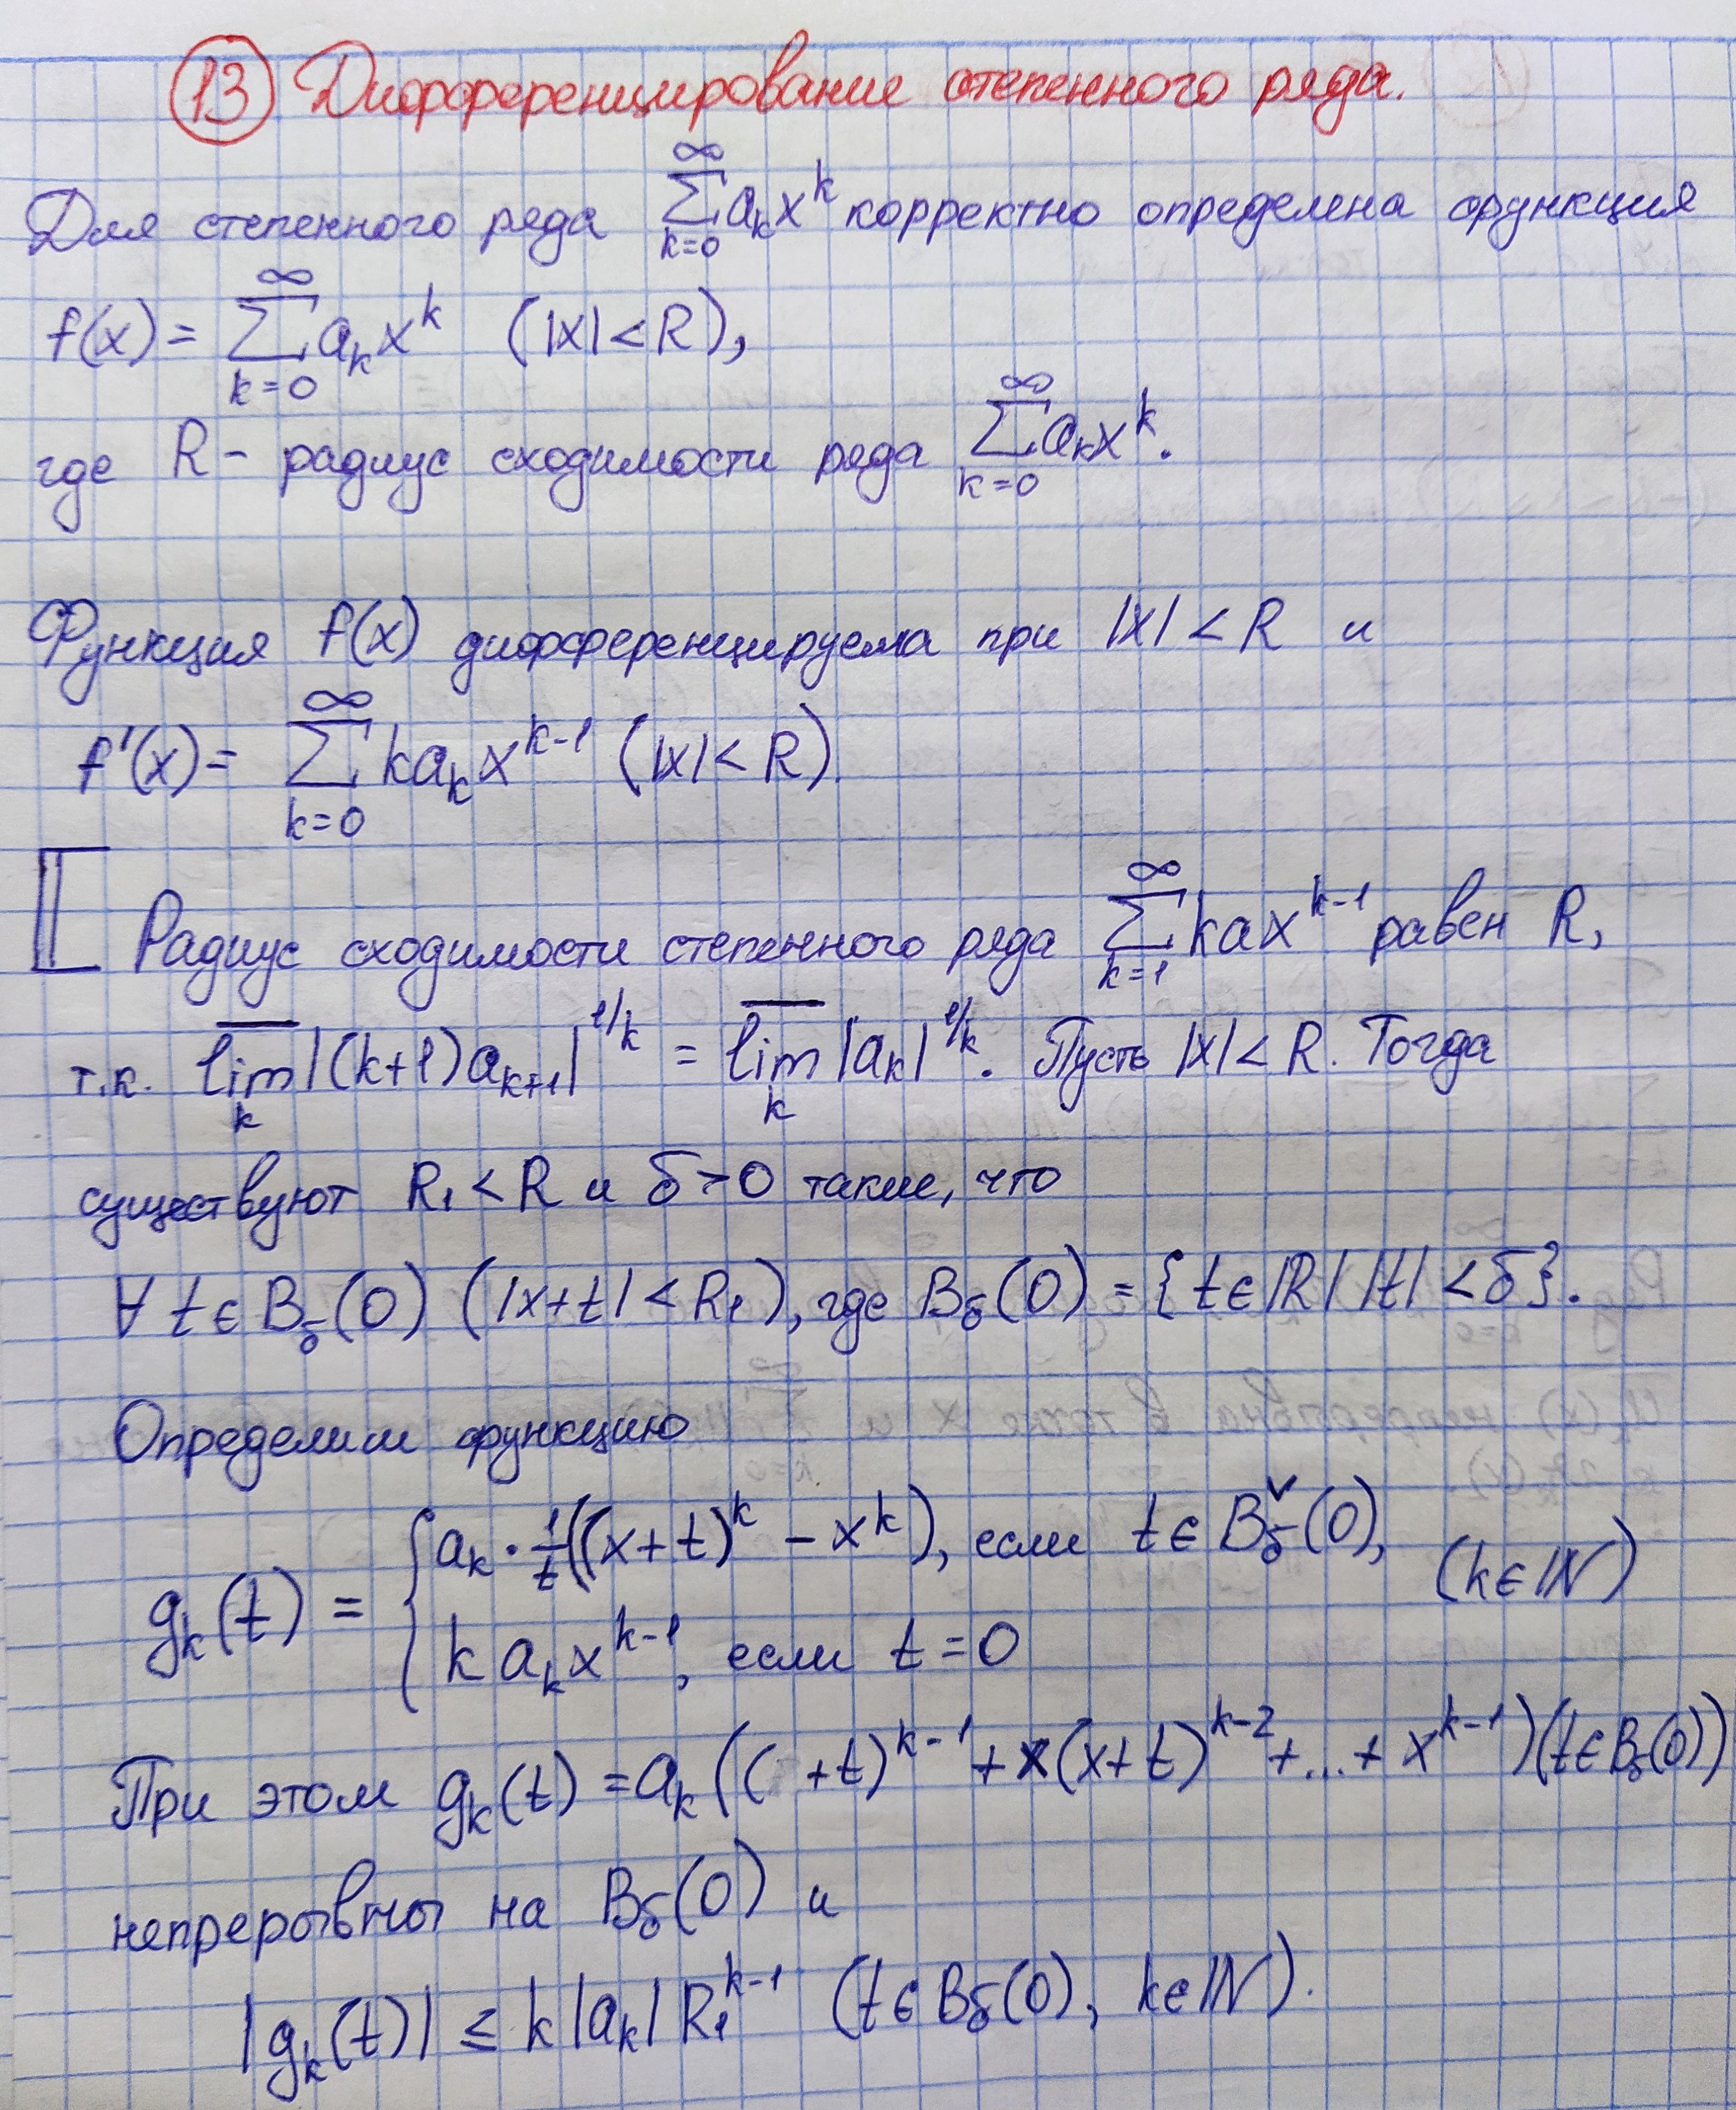 13 Дифференцирование степенного ряда.
Для степенного ряда ∑_{k=0}^{∞} a_k x^k корректно определена функция
f(x) = ∑_{k=0}^{∞} a_k x^k (|x| < R),
где R – радиус сходимости ряда ∑_{k=0}^{∞} a_k x^k.
Функция f(x) дифференцируема при |x| < R и
f'(x) = ∑_{k=0}^{∞} k a_k x^{k-1} (|x| < R).
[ Радиус сходимости степенного ряда ∑_{k=1}^{∞} k a x^{k-1} равен R,
т.к. \overline{lim}_k |(k+1) a_{k+1}|^{1/k} = \overline{lim}_k |a_k|^{1/k}. Пусть |x| < R. Тогда
существуют R_1 < R и δ > 0 такие, что
∀ t ∈ B_δ(0) (|x+t| < R_1), где B_δ(0) = {t ∈ ℝ | |t| < δ}.
Определим функцию
g_k(t) = { a_k · 1/t ((x+t)^k − x^k), если t ∈ B̌_δ(0), (k ∈ ℕ)
k a_k x^{k-1}, если t = 0
При этом g_k(t) = a_k (( +t)^{k-1} + x(x+t)^{k-2} + ... + x^{k-1}) (t ∈ B_δ(0))
непрерывны на B_δ(0) и
|g_k(t)| ≤ k |a_k| R_1^{k-1} (t ∈ B_δ(0), k ∈ ℕ).